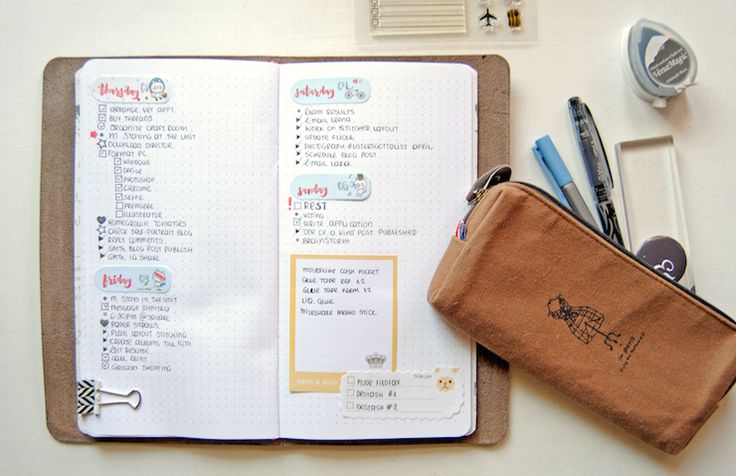 thursday 02
ARRANGE VET APPT.
BUY THREADS
ORGANIZE CRAFT ROOM
M STAYING AT THE UNIT
DOWNLOAD DIRECTOR
FORMAT PC
WINDOWS
OFFICE
PHOTOSHOP
CHROME
SKYPE
PREMIERE
ILLUSTRATOR
HOMEGROWN TOMATOES
CHECK SELF-PORTRAIT BLOG
REPLY COMMENTS
BLOG POST PUBLISH
IG SHARE
friday 03
M STAYS IN THE UNIT
MESSAGE DIMITRA
6:30PM @SQUARE
PAPER STRAWS
PLAN LAYOUT STITCHING
CREATE ALBUMS TILL 10TH
EDIT RESUME
CALL AUNT
GROCERY SHOPPING
saturday 04
EXAM RESULTS
E-MAIL LENA
WORK ON STITCHED LAYOUT
UPDATE FLICKR
PHOTOGRAPH APRIL
SCHEDULE BLOG POST
E-MAIL
sunday 05
REST
VOTING
WRITE APPLICATION
ONE OF A KIND POST PUBLISHED
BRAINSTORM
MOLESKINE CASH POCKET
GLUE TAPE REP. X2
GLUE TAPE PERM X2
LIQ. GLUE
MILKSHAKE MEMO STICK.
HAVE A NICE
FILOFAX
DESTASH #1
DESTASH #2
VersaMagic
in paris